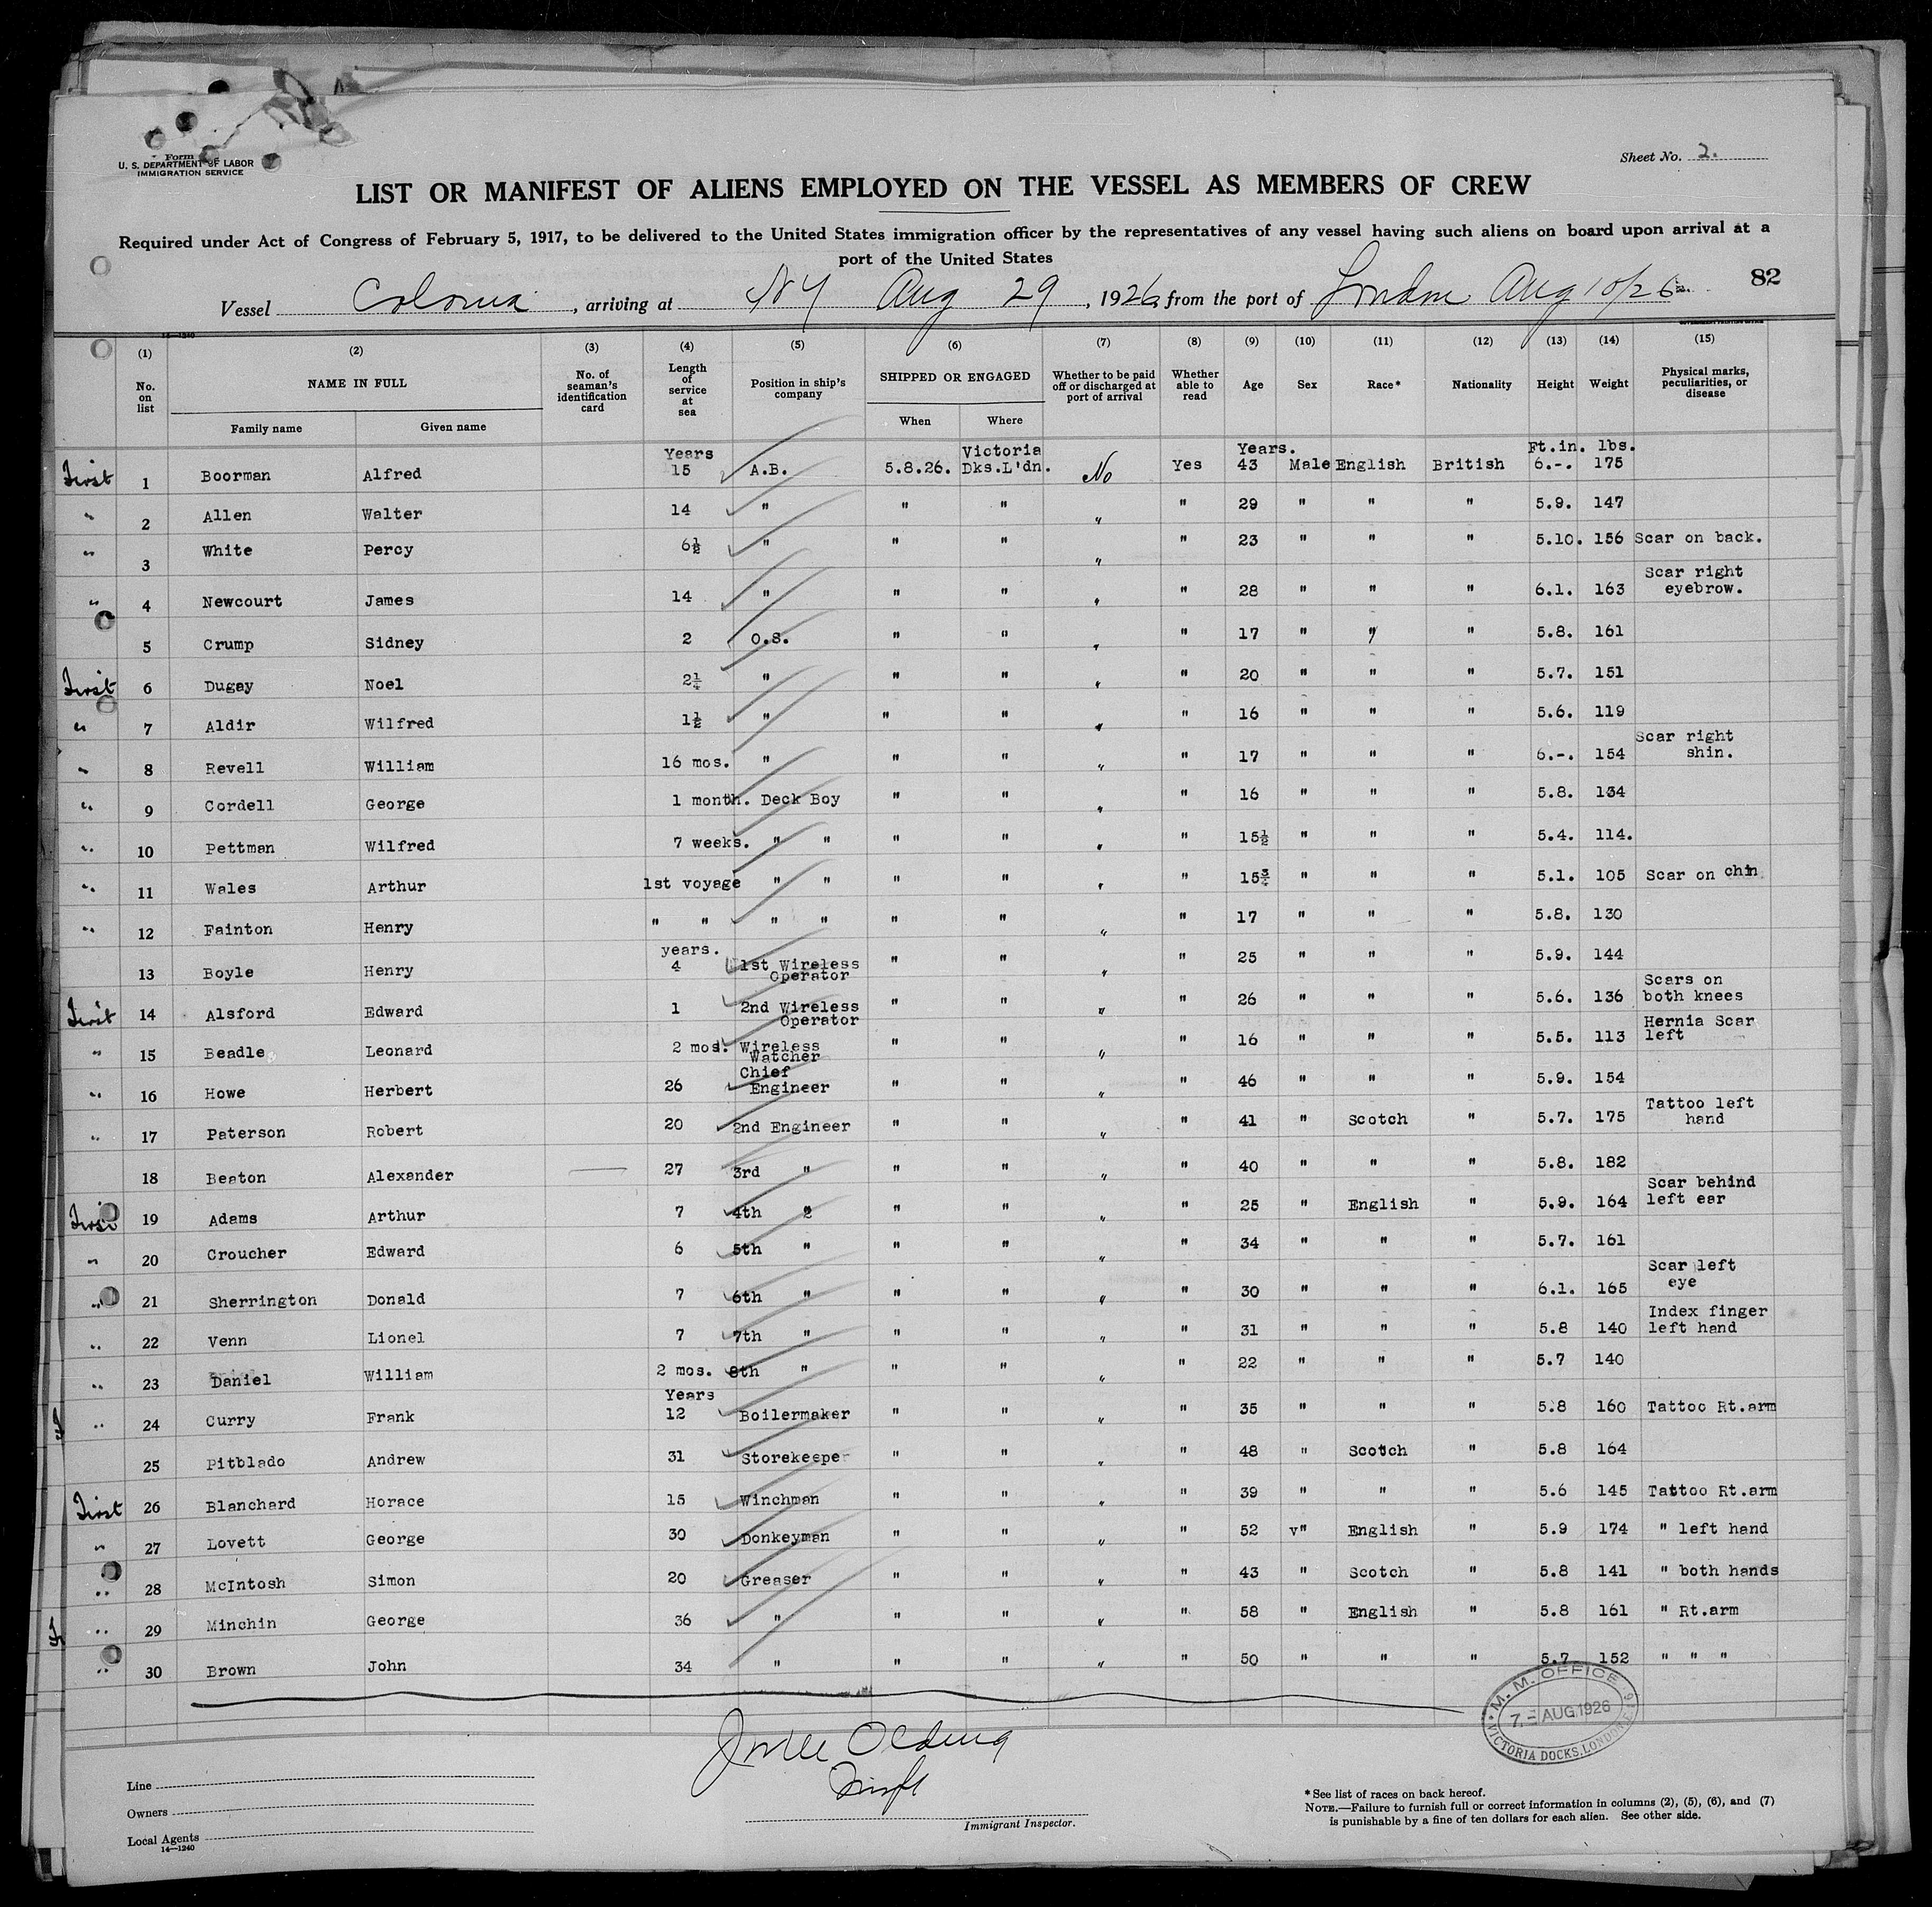 Form
U. S. DEPARTMENT OF LABOR
IMMIGRATION SERVICE
Sheet No. 2.
LIST OR MANIFEST OF ALIENS EMPLOYED ON THE VESSEL AS MEMBERS OF CREW
Required under Act of Congress of February 5, 1917, to be delivered to the United States immigration officer by the representatives of any vessel having such aliens on board upon arrival at a
port of the United States
Vessel Colonia, arriving at NY Aug 29, 1926, from the port of London Aug 10/26. 82
14-1240
(1) (2) (3) (4) (5) (6) (7) (8) (9) (10) (11) (12) (13) (14) (15)
No. on list NAME IN FULL Family name Given name No. of seaman's identification card Length of service at sea Position in ship's company SHIPPED OR ENGAGED When Where Whether to be paid off or discharged at port of arrival Whether able to read Age Sex Race* Nationality Height Weight Physical marks, peculiarities, or disease
Years Victoria Years. Ft.in. lbs.
First 1 Boorman Alfred 15 A.B. 5.8.26. Dks.L'dn. No Yes 43 Male English British 6.-. 175
" 2 Allen Walter 14 " " " " " 29 " " " 5.9. 147
" 3 White Percy 6½ " " " " " 23 " " " 5.10. 156 Scar on back.
" 4 Newcourt James 14 " " " " " 28 " " " 6.1. 163 Scar right eyebrow.
5 Crump Sidney 2 O.S. " " " " 17 " " " 5.8. 161
First 6 Dugay Noel 2¼ " " " " " 20 " " " 5.7. 151
" 7 Aldir Wilfred 1½ " " " " " 16 " " " 5.6. 119
" 8 Revell William 16 mos. " " " " " 17 " " " 6.-. 154 Scar right shin.
" 9 Cordell George 1 month. Deck Boy " " " " 16 " " " 5.8. 134
" 10 Pettman Wilfred 7 weeks. " " " " " " 15½ " " " 5.4. 114.
" 11 Wales Arthur 1st voyage " " " " " " 15¾ " " " 5.1. 105 Scar on chin
" 12 Fainton Henry " " " " " " " " 17 " " " 5.8. 130
years.
13 Boyle Henry 4 1st Wireless Operator " " " " 25 " " " 5.9. 144
First 14 Alsford Edward 1 2nd Wireless Operator " " " " 26 " " " 5.6. 136 Scars on both knees
" 15 Beadle Leonard 2 mos. Wireless Watcher " " " " 16 " " " 5.5. 113 Hernia Scar left
" 16 Howe Herbert 26 Chief Engineer " " " " 46 " " " 5.9. 154
" 17 Paterson Robert 20 2nd Engineer " " " " 41 " Scotch " 5.7. 175 Tattoo left hand
18 Beaton Alexander 27 3rd " " " " " 40 " " " 5.8. 182
First 19 Adams Arthur 7 4th " " " " " 25 " English " 5.9. 164 Scar behind left ear
" 20 Croucher Edward 6 5th " " " " " 34 " " " 5.7. 161
" 21 Sherrington Donald 7 6th " " " " " 30 " " " 6.1. 165 Scar left eye
" 22 Venn Lionel 7 7th " " " " " 31 " " " 5.8 140 Index finger left hand
" 23 Daniel William 2 mos. 8th " " " " " 22 " " " 5.7 140
Years
" 24 Curry Frank 12 Boilermaker " " " " 35 " " " 5.8 160 Tattoo Rt.arm
25 Pitblado Andrew 31 Storekeeper " " " " 48 " Scotch " 5.8 164
First 26 Blanchard Horace 15 Winchman " " " " 39 " " " 5.6 145 Tattoo Rt.arm
" 27 Lovett George 30 Donkeyman " " " " 52 v" English " 5.9 174 " left hand
" 28 McIntosh Simon 20 Greaser " " " " 43 " Scotch " 5.8 141 " both hands
" 29 Minchin George 36 " " " " " 58 " English " 5.8 161 " Rt.arm
" 30 Brown John 34 " " " " " 50 " " " 5.7 152 " " "
M. M. OFFICE
7 - AUG 1926
VICTORIA DOCKS, LONDON E.16
Olding
Line
Owners
Local Agents
14—1240
Immigrant Inspector.
* See list of races on back hereof.
NOTE.—Failure to furnish full or correct information in columns (2), (5), (6), and (7)
is punishable by a fine of ten dollars for each alien. See other side.